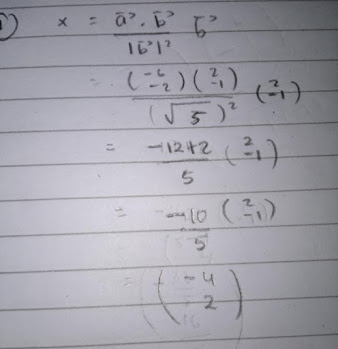 1) x = a⃗ . b⃗ / |b⃗|² b⃗
= (-6 -2) (2 -1) / (√5)² (2 -1)
= -12+2 / 5 (2 -1)
= -10 / 5 (2 -1)
= (-4 2)